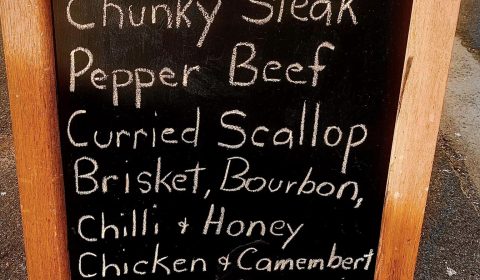 Chunky Steak
Pepper Beef
Curried Scallop
Brisket, Bourbon,
Chilli + Honey
Chicken + Camembert